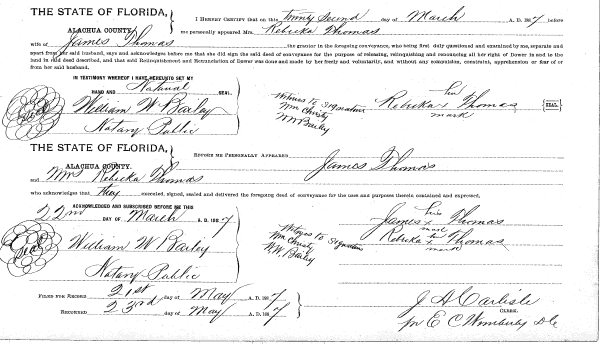 THE STATE OF FLORIDA,
ALACHUA COUNTY.
I HEREBY CERTIFY that on this twenty second day of March A. D. 1887 before
me personally appeared Mrs. Rebicka Thomas
wife of James Thomas the grantor in the foregoing conveyance, who being first duly questioned and examined by me, separate and
apart from her said husband, says and acknowledges before me that she did sign the said deed of conveyance for the purpose of releasing, relinquishing and renouncing all her right of Dower in and to the
land in said deed described, and that said Relinquishment and Renunciation of Dower was done and made by her freely and voluntarily, and without any compulsion, constraint, apprehension or fear of or
from her said husband.
IN TESTIMONY WHEREOF I HAVE HEREUNTO SET MY
HAND AND Notarial SEAL.
Seal
William W Bailey
Notary Public
Witness to Signature
Wm Christy
W W Bailey
her
Rebicka x Thomas SEAL.
mark
THE STATE OF FLORIDA,
ALACHUA COUNTY.
BEFORE ME PERSONALLY APPEARED James Thomas
and Mrs Rebicka Thomas
who acknowledges that they executed, signed, sealed and delivered the foregoing deed of conveyance for the uses and purposes therein contained and expressed.
ACKNOWLEDGED AND SUBSCRIBED BEFORE ME THIS
22nd DAY OF March A. D. 1887
Seal
William W Bailey
Notary Public
Witness to Signature
Wm Christy
W.W. Bailey
his
James x Thomas
mark
her
Rebicka x Thomas
mark
FILED FOR RECORD 21st day of May A. D. 1887
RECORDED 23rd day of May A. D. 1887
J A Carlisle
CLERK.
pr E C Wimberly DC